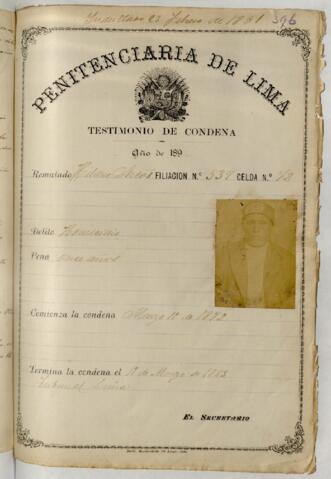 de 1891 396
PENITENCIARIA DE LIMA
TESTIMONIO DE CONDENA
Año de 189
Rematado FILIACION N.º 339 CELDA N.º
Delito Homicidio
Pena once años
Comienza la condena Marzo 1º de 1892
Termina la condena el 1º de Marzo de 1903
Tribunal Lima
EL SECRETARIO